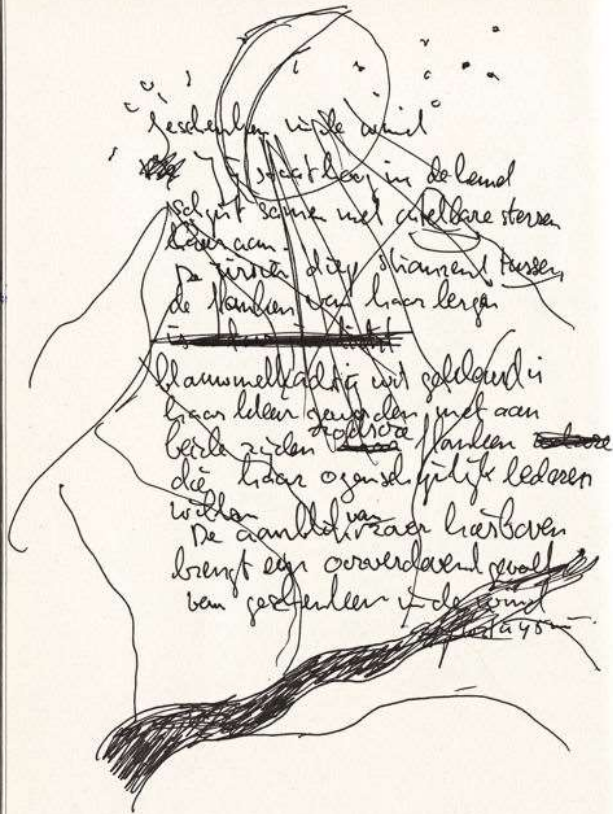 geschenken in de wind
staat hoog in de hemel
schijnt samen met ontelbare sterren
haar aan.
De rivier diep stromend tussen
de flanken van haar bergen
is
blauwmelkachtig wit gekleurd is
haar kleur geworden met aan
beide zijden flanken
die haar ogenschijnlijk bedaren
willen
De aanblik van hierboven
brengt een oorverdovend geweld
van geschenken in de wind